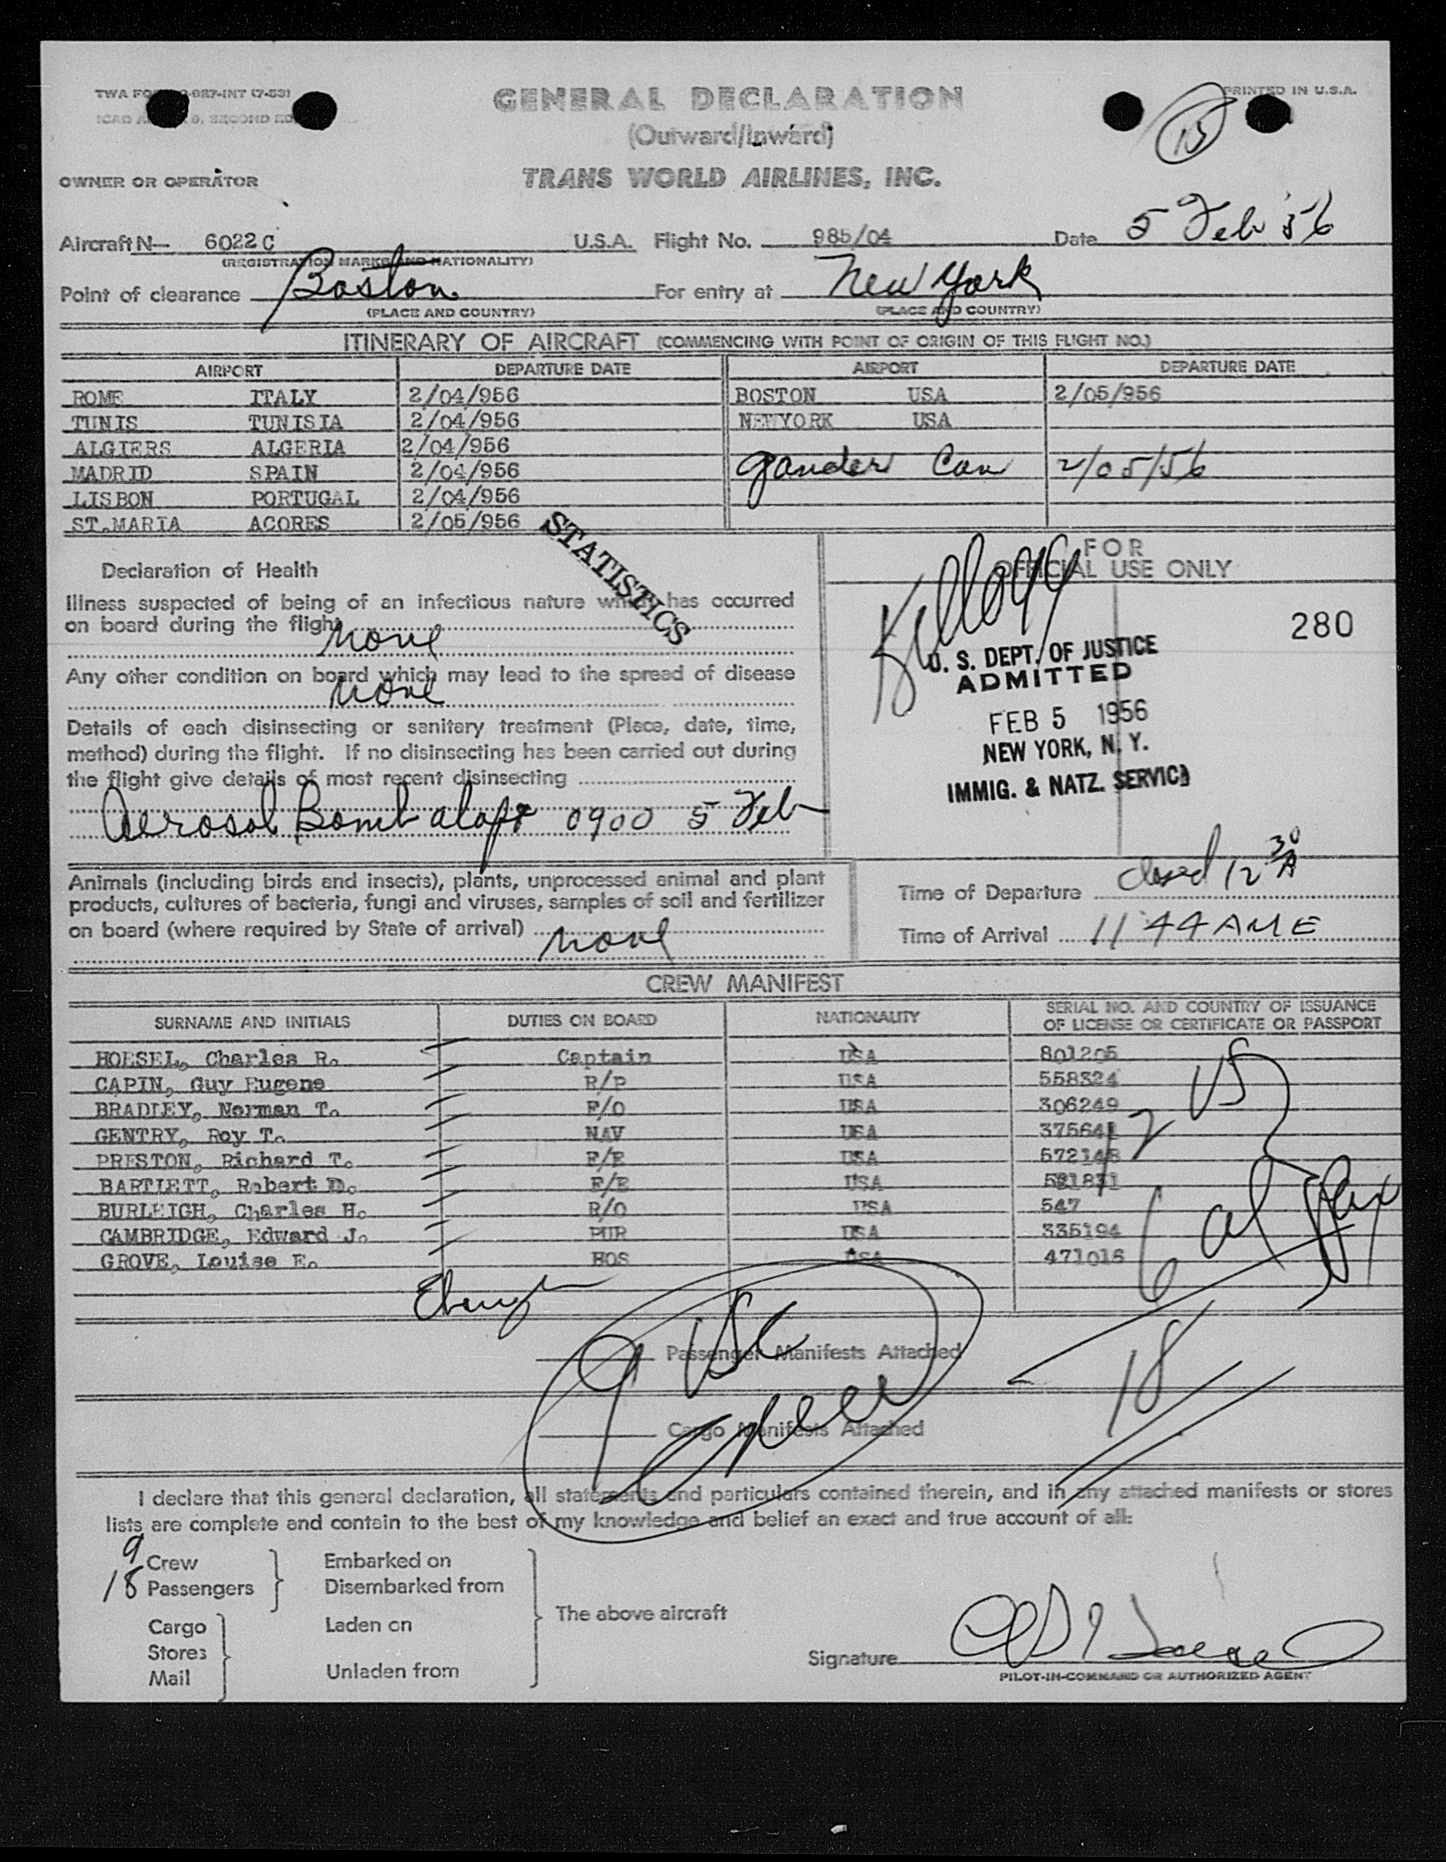 GENERAL DECLARATION
PRINTED IN U.S.A.
15
(Outward/Inward)
OWNER OR OPERATOR TRANS WORLD AIRLINES, INC.
Aircraft N- 6022C U.S.A. Flight No. 985/04 Date 5 Feb '56
(REGISTRATION MARKS AND NATIONALITY)
Point of clearance Boston For entry at New York
(PLACE AND COUNTRY) (PLACE AND COUNTRY)
ITINERARY OF AIRCRAFT (COMMENCING WITH POINT OF ORIGIN OF THIS FLIGHT NO.)
AIRPORT DEPARTURE DATE AIRPORT DEPARTURE DATE
ROME ITALY 2/04/956 BOSTON USA 2/05/956
TUNIS TUNISIA 2/04/956 NEWYORK USA
ALGIERS ALGERIA 2/04/956
MADRID SPAIN 2/04/956 Gander Can 2/05/56
LISBON PORTUGAL 2/04/956
ST.MARIA ACORES 2/05/956
STATISTICS
Declaration of Health
Illness suspected of being of an infectious nature which has occurred
on board during the flight
None
Any other condition on board which may lead to the spread of disease
None
Details of each disinsecting or sanitary treatment (Place, date, time,
method) during the flight. If no disinsecting has been carried out during
the flight give details of most recent disinsecting
Aerosol Bomb aloft 0900 5 Feb
FOR
OFFICIAL USE ONLY
Kellogg
280
U. S. DEPT. OF JUSTICE
ADMITTED
FEB 5 1956
NEW YORK, N. Y.
IMMIG. & NATZ. SERVICE
Animals (including birds and insects), plants, unprocessed animal and plant
products, cultures of bacteria, fungi and viruses, samples of soil and fertilizer
on board (where required by State of arrival)
None
Time of Departure closed 12 30 A
Time of Arrival 11 44 AME
CREW MANIFEST
SURNAME AND INITIALS DUTIES ON BOARD NATIONALITY SERIAL NO. AND COUNTRY OF ISSUANCE
OF LICENSE OR CERTIFICATE OR PASSPORT
HOESEL, Charles R. Captain USA 801205
CAPIN, Guy Eugene R/P USA 558324
BRADLEY, Norman T. F/O USA 306249
GENTRY, Roy T. NAV USA 375641
PRESTON, Richard T. F/E USA 572148
BARTLETT, Robert D. F/E USA
BURLEIGH, Charles H. R/O USA 547
CAMBRIDGE, Edward J. PUR USA 335194
GROVE, Louise E. HOS USA 471016
12 US
6 al
18
9 USC
Passenger Manifests Attached
Cargo Manifests Attached
I declare that this general declaration, all statements and particulars contained therein, and in any attached manifests or stores
lists are complete and contain to the best of my knowledge and belief an exact and true account of all:
9 Crew Embarked on
18 Passengers Disembarked from
The above aircraft
Cargo Laden on
Stores
Mail Unladen from
Signature
PILOT-IN-COMMAND OR AUTHORIZED AGENT